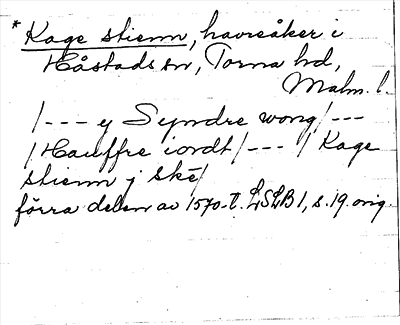 * Kage stienn, havreåker i
Håstads sn, Torna hd,
Malm. l.
/--- y Syndre wong/---
/Hauffre iordt/--- / Kage
stienn j ske/
förra delen av 1570-t. LSLB 1, s. 19. orig.